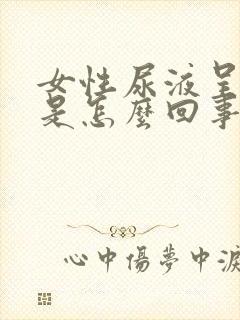 女性尿液呈
是怎麼回事
心中傷夢中淚